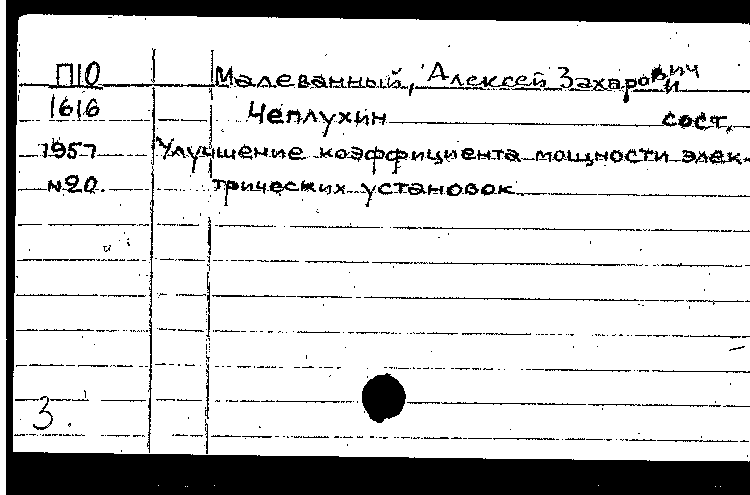 П10 Малеванный, Алексей Захарович и
1616 Чеплухин сост.
1957 Улучшение коэффициента мощности элек-
№20. трических установок
3.